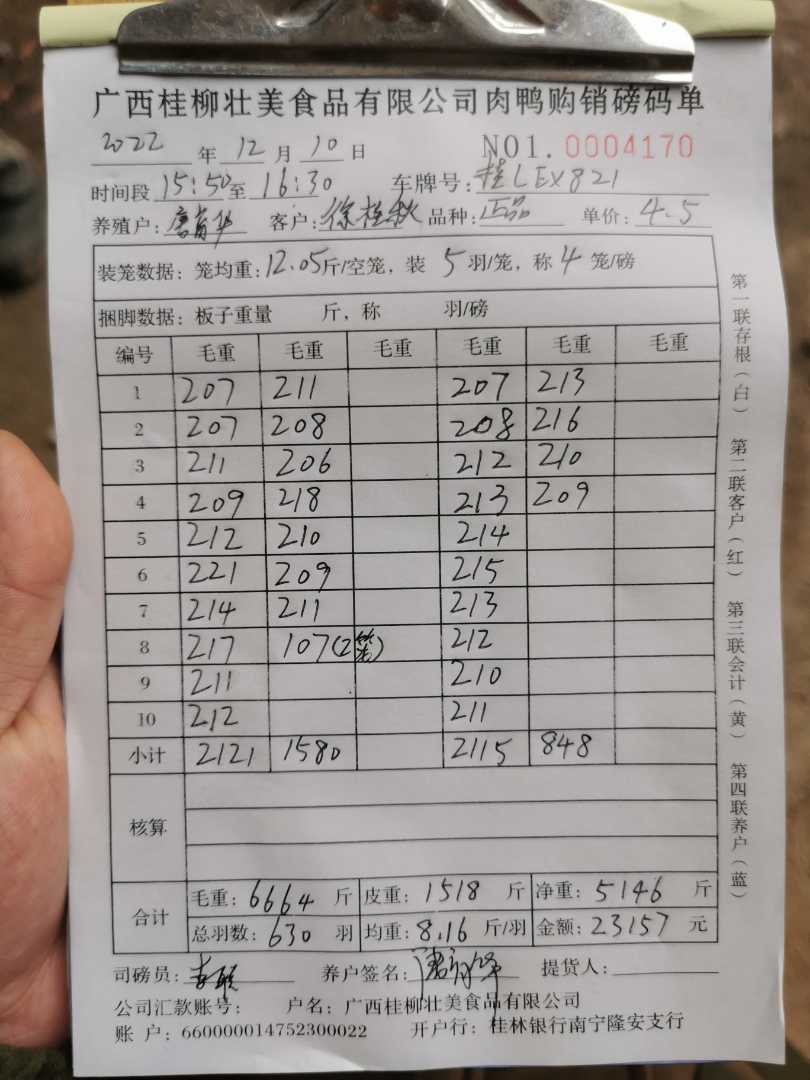 广西桂柳壮美食品有限公司肉鸭购销磅码单
2022 年 12 月 10 日 NO1. 0004170
时间段 15:50 至 16:30 车牌号: 桂LEX821
养殖户: 客户: 徐桂秋 品种: 正品 单价: 4.5
装笼数据: 笼均重: 12.05 斤/空笼, 装 5 羽/笼, 称 4 笼/磅
捆脚数据: 板子重量 斤, 称 羽/磅
编号 毛重 毛重 毛重 毛重 毛重 毛重
1 207 211 207 213
2 207 208 208 216
3 211 206 212 210
4 209 218 213 209
5 212 210 214
6 221 209 215
7 214 211 213
8 217 107(2笼) 212
9 211 210
10 212 211
小计 2121 1580 2115 848
核算
合计 毛重: 6664 斤 皮重: 1518 斤 净重: 5146 斤
总羽数: 630 羽 均重: 8.16 斤/羽 金额: 23157 元
司磅员: 养户签名: 提货人:
公司汇款账号: 户名: 广西桂柳壮美食品有限公司
账 户: 660000014752300022 开户行: 桂林银行南宁隆安支行
第一联存根(白) 第二联客户(红) 第三联会计(黄) 第四联养户(蓝)